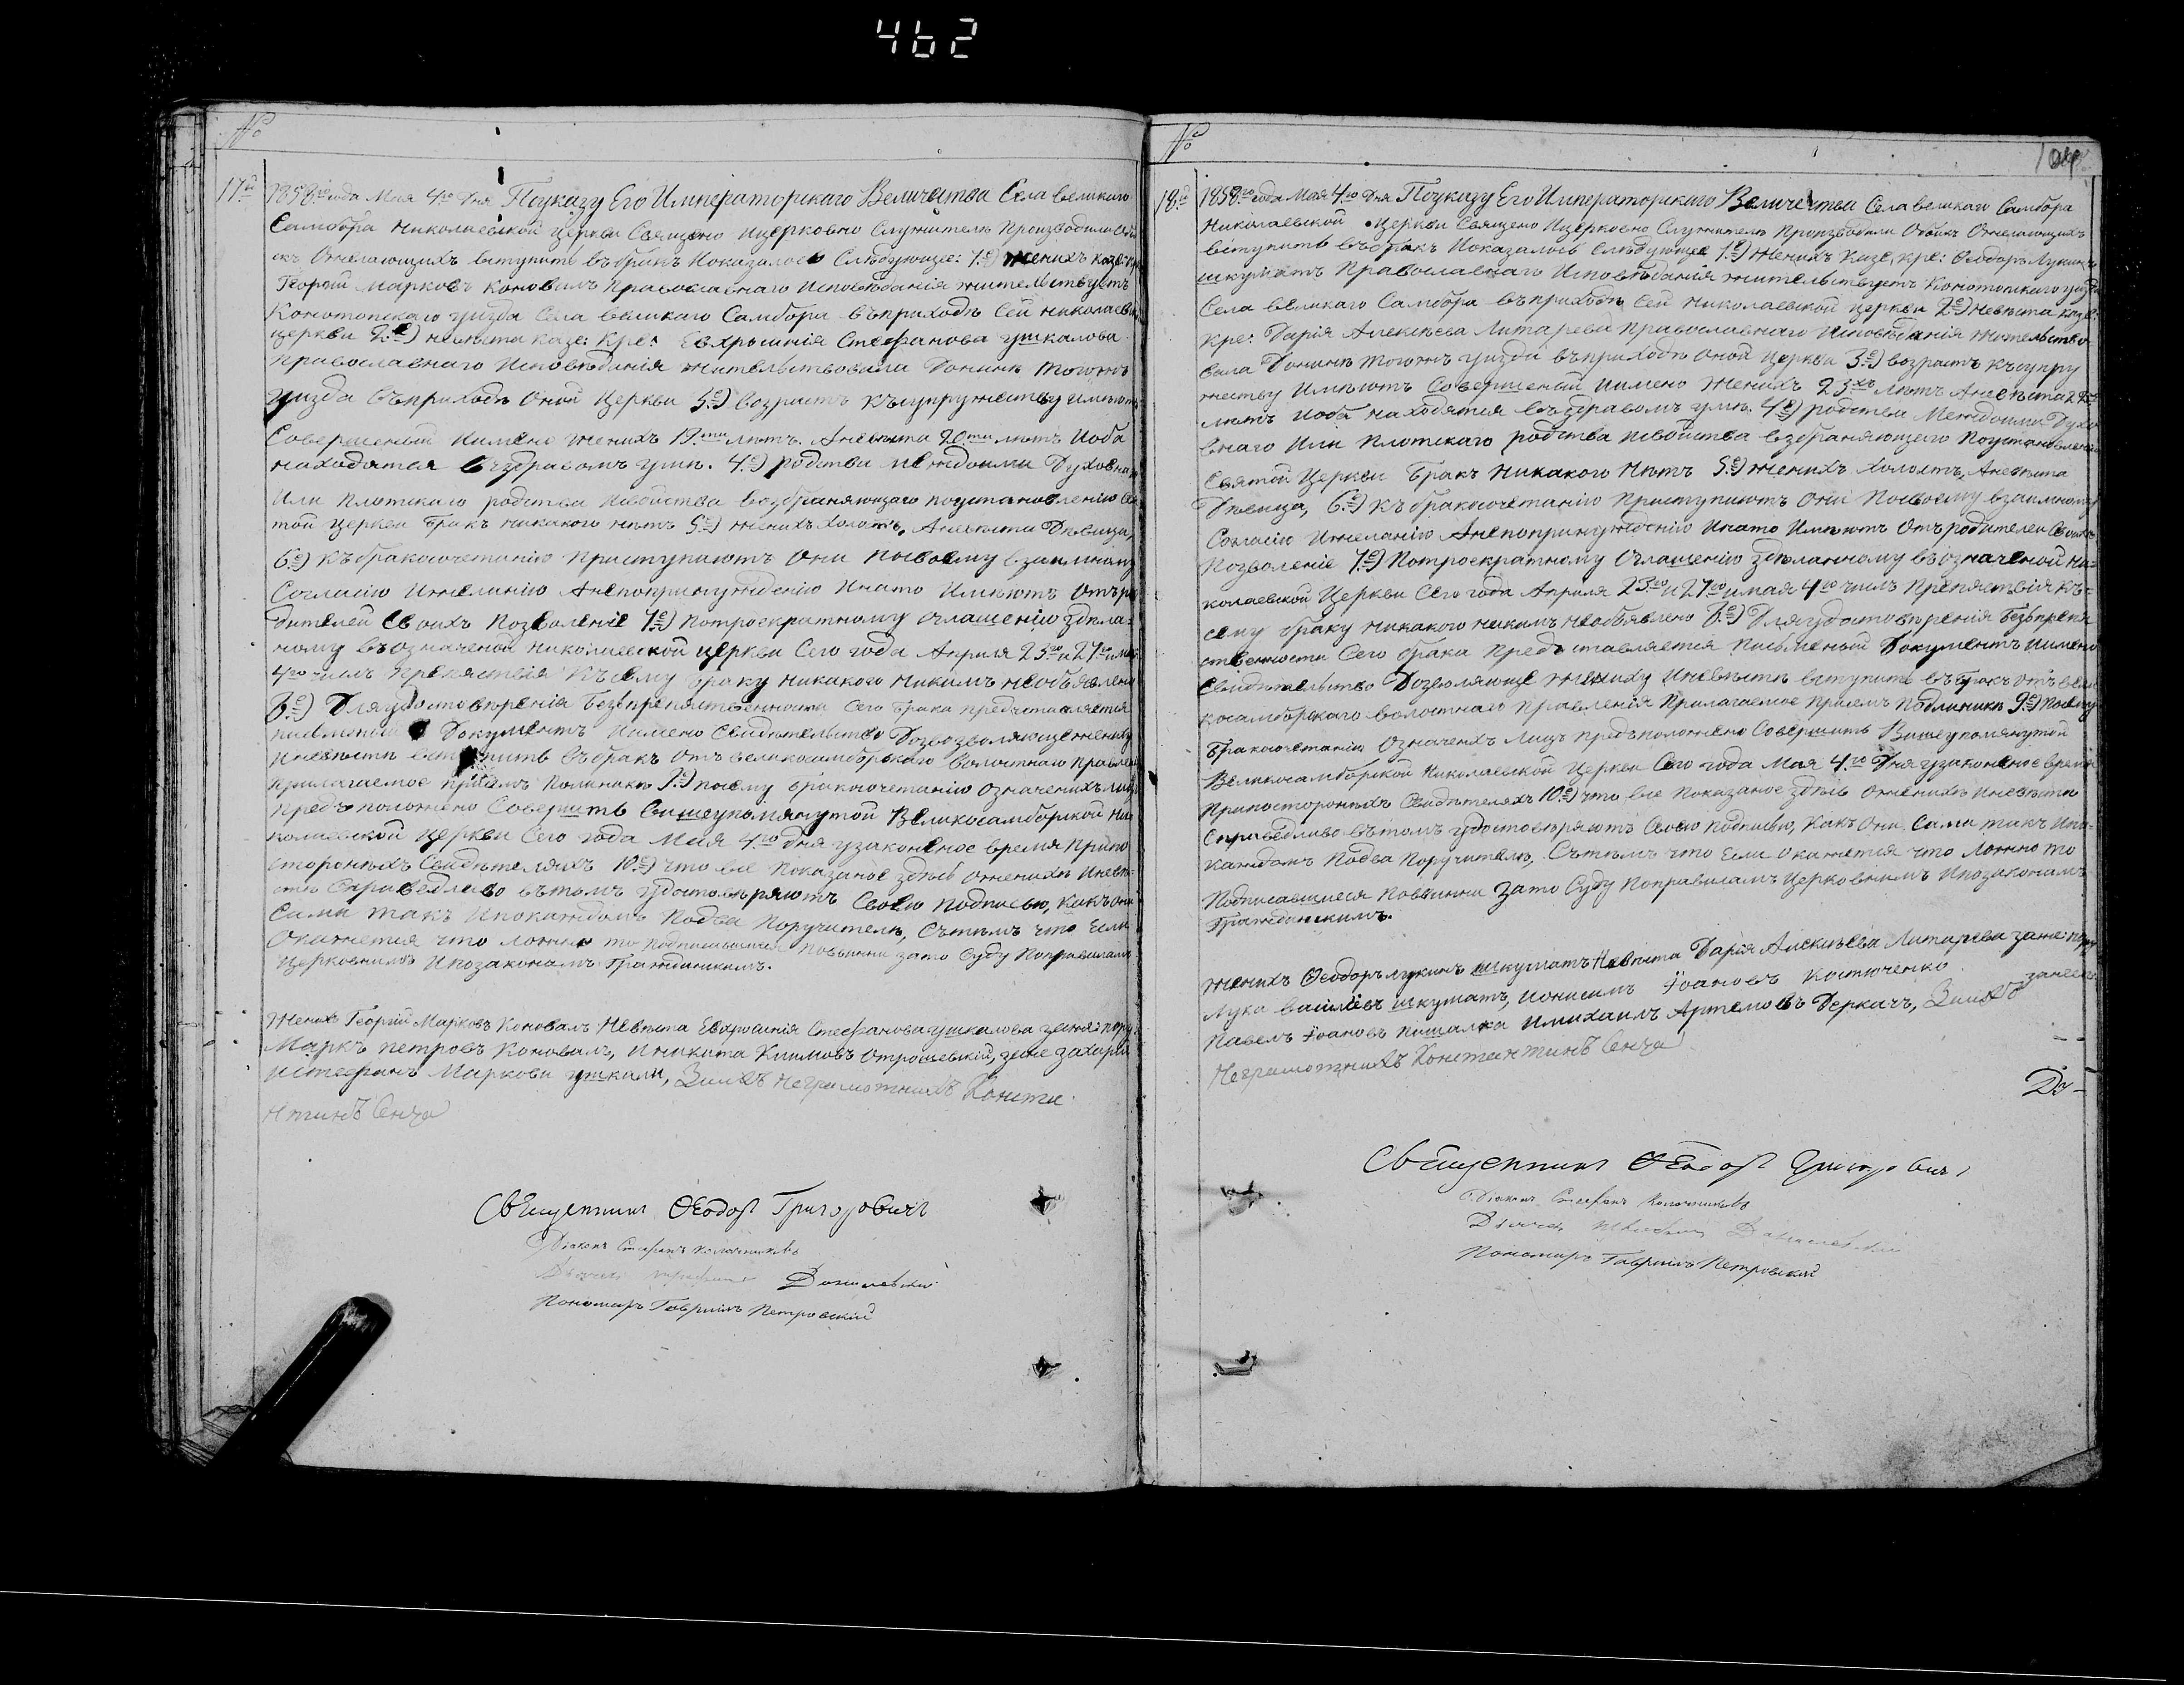 462
№
17й 1858го года Мая 4го дня Поуказу Его Императорскаго Величества Села великого
Самбора Николаевской церкви Священо Ицерковно Служителѣ Производили Обы
скъ Ожелающихъ вступить въбракъ Показалось Слѣдующе: 1е) Женихъ казе: кре
Георгій Марковъ Коновалъ Православнаго Исповѣданія жительствуетъ
Конотопскаго уизда Села великаго Самбора въприходѣ Сей николаевск
церкви 2е) невѣста казе: кре: Евхросинія Стефанова ушкалова
православнаго Исповѣданія жительствовала Донинѣ тогожъ
уизда въприходѣ Оной церкви 3е) возрастъ Ксупружеству имеютъ
Совершеный Имено женихъ 19.ти лѣтъ. Аневѣста 20ти лѣтъ Иоба
находятся въздравомъ умѣ. 4е) родства междоими Духовнаго
Или плотскаго родства исвойства возбраняющаго поустановленію Свя
той церкви бракъ никакого нѣтъ 5е) женихъ холостъ, Аневѣста Дѣвица,
6е) Къбракосочетанію приступаютъ Они посвоему взаимному
Согласію Ижеланію Анепопринужденію Инато Имѣютъ Отъро
дителей Своихъ позволеніе 7е) потроекратному оглашенію здѣла-
ному въозначеной николаевской церкви Сего года Априля 23го и 27го имая
4го числъ препяствія Къsему браку никакого никимъ необъявлено
8е) Для удостовѣренія Безпрепятственности Сего брака представляется
письменый Документъ Имено Свидѣтельство Дозволяюще жениху
Иневѣстѣ вступить въбракъ Отъ великосамборскаго волостнаго правле
прилагаемое присемъ подлиникѣ 9е) посему бракосочетанію означенихъ лицъ
предположено Совершить Вишеупомянутой Великосамборской Ни
колаевской церкви Сего года Мая 4го дня узаконеное время припо
стороннихъ Свидѣтеляхъ 10е) что все показаное здѣсь ожених Иневѣ-
стѣ Справедливо вътомъ удостовѣряютъ Своею подписью, какъ они
Сами такъ Ипокаждомъ подва Поручителѣ, Стѣмъ что Если
Окажется что ложно то подписавшияся повинни зато Суду поправиламъ
церковнимъ Ипозаконамъ Гражданскимъ.
Женихъ Георгій Марковъ Коновалъ Невѣста Евхросинія Стефанова ушкалова зане: пору
Маркъ петровъ Коновалъ, Иникита Климовъ Отрошевскій, зане захарій
Истефанъ Маркови ушкали, Засихъ неграмотнихъ Конста
нтинъ Сенча
Священникъ Ѳеодоръ Григоровичъ
Діаконъ Стефанъ
Данилевскій
Пономарь Гавріилъ Петровскій
№
104
18й 1858го года Мая 4го дня Поуказу Его Императорскаго Величества Села великаго Самбора
Николаевской Церкви Священо Ицерковно Служителѣ Производили Обыскъ Ожелающихъ
вступить въбракъ Показалось слѣдующее 1е) Женихъ Казе, кре: Ѳеодоръ Лукинъ
шкуматъ Православнаго Исповѣданія жительствуетъ Конотопскаго уизда
Села великаго Самбора въприходѣ Сей николаевской церкви 2е) Невѣста казе:
кре: Дарія Алексѣева Литарева православнаго Исповѣданія жительство-
вала Донинѣ тогожъ уизда въприходѣ оной церкви 3е) возрастъ Ксупру
жеству Имѣютъ Совершеный Имено женихъ 23хъ лѣтъ Аневѣста
лѣтъ Иоба находятся въздравомъ умѣ. 4е) родства междоими Духо
внаго Или плотскаго родства исвойства взбраняющего поустановленію
Святой Церкви бракъ никакого нѣтъ 5е) женихъ холостъ, Аневѣста
Дѣвица, 6е) Къбракосочетанію приступаютъ Они посвоему взаимному
Согласію Ижеланію Анепопринужденію Инато Имѣютъ Отъ родителей Своихъ
позволеніе 7е) Потроекратному Оглашенію здѣланному въозначеной ни-
колаевской Церкви Сего года Априля 23го и 27го имая 4го числъ препятствія къ-
сему браку никакого никимъ необъявлено 8е) Для удостовѣренія безпрепят
ственности Сего брака представляется письменый Документъ Имено
Свидѣтельство Дозволяюще жениху Иневѣстѣ вступить въбракъ отъ вели
косамборскаго волостнаго правленія прилагаемое присемъ подлиникѣ 9е) Посему
бракосочетанію Означенихъ Лицъ предположено Совершить Вишеупомянутой
Великосамборской Николаевской Церкви Сего года Мая 4го дня узаконеное время
припостороннихъ Свидѣтеляхъ 10е) что все показаное здѣсь Ожених Иневѣсти
Справедливо вътомъ удостовѣряютъ Своею подписью, Какъ Они Сами такъ Ипо-
каждомъ подва поручителѣ, Стѣмъ что Если Окажется что ложно то
Подписавшиеся повинни зато Суду поправиламъ церковнимъ Ипозаконамъ
Гражданскимъ.
женихъ Ѳеодоръ лукинъ шкуматъ Невѣста Дарія Алексѣева Литарева зане: пору
Лука василіевъ шкуматъ, Ионисимъ Іоановъ Костюченко занев
Павелъ Іоановъ пошалка Имихаилъ Артемовъ Деркачъ, Засихъ
Неграмотнихъ Константинъ Сенча
До-
Священникъ Ѳеодоръ Григоровичъ
Діаконъ Стефанъ
Данилевскій
Пономарь Гавріилъ Петровскій